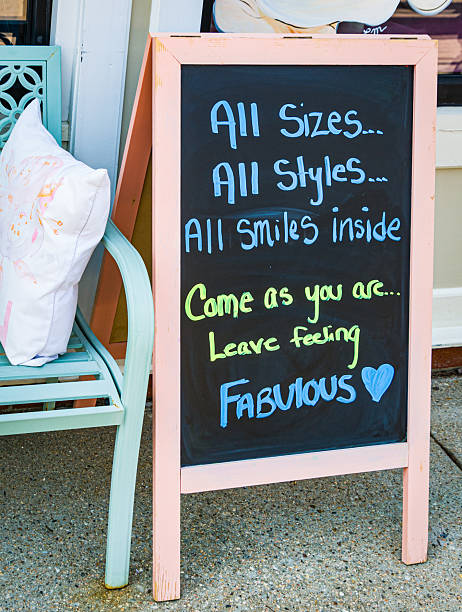 All Sizes...
All Styles...
All smiles inside
Come as you are...
Leave feeling
FABULOUS